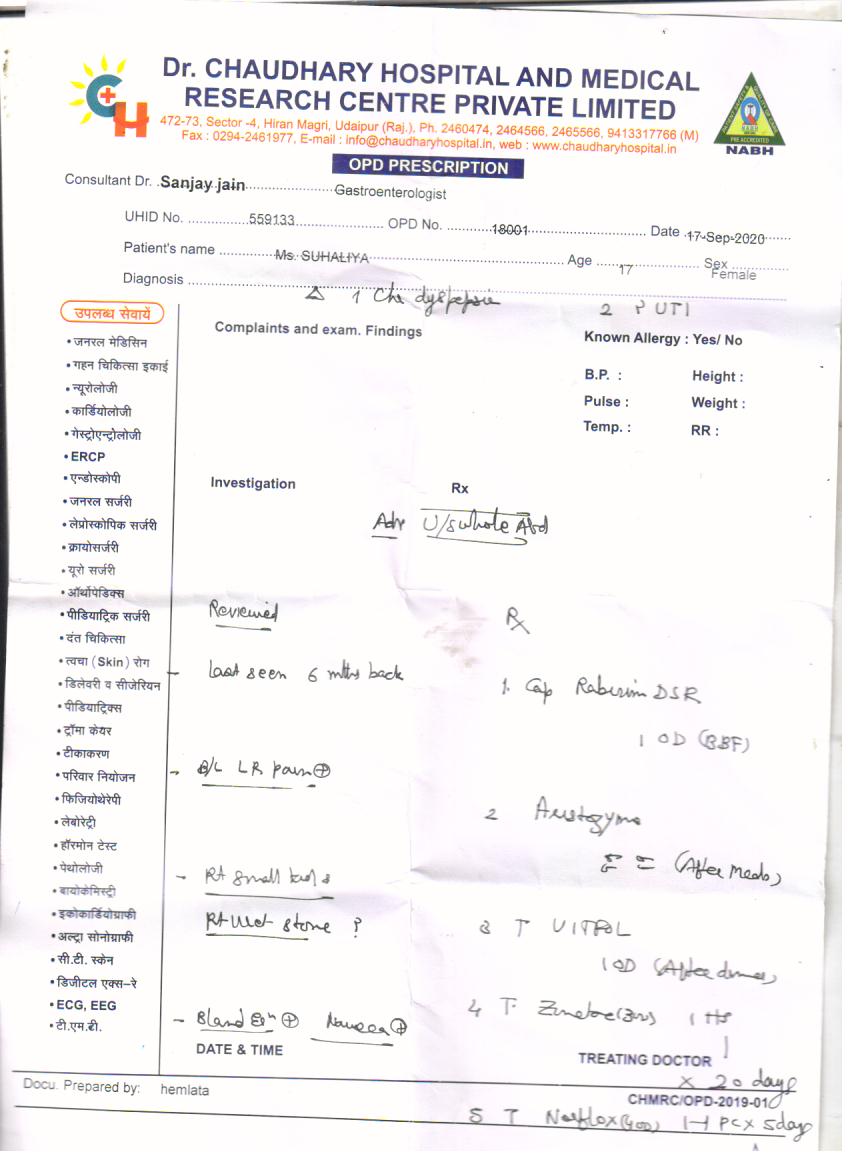 Dr. CHAUDHARY HOSPITAL AND MEDICAL
RESEARCH CENTRE PRIVATE LIMITED
472-73, Sector -4, Hiran Magri, Udaipur (Raj.), Ph. 2460474, 2464566, 2465566, 9413317766 (M)
Fax : 0294-2461977, E-mail : info@chaudharyhospital.in, web : www.chaudharyhospital.in
PRE ACCREDITED
NABH
OPD PRESCRIPTION
Consultant Dr. Sanjay jain Gastroenterologist
UHID No. 559133 OPD No. 18001 Date 17-Sep-2020
Patient's name Ms. SUHALIYA Age 17 Sex Female
Diagnosis Δ 1 Chr dyspepsia 2 ? UTI
उपलब्ध सेवायें
Complaints and exam. Findings
Known Allergy : Yes/ No
B.P. : Height :
Pulse : Weight :
Temp. : RR :
• जनरल मेडिसिन
• गहन चिकित्सा इकाई
• न्यूरोलोजी
• कार्डियोलोजी
• गेस्ट्रोएन्ट्रोलोजी
• ERCP
• एन्डोस्कोपी
• जनरल सर्जरी
• लेप्रोस्कोपिक सर्जरी
• क्रायोसर्जरी
• यूरो सर्जरी
• ऑर्थोपेडिक्स
• पीडियाट्रिक सर्जरी
• दंत चिकित्सा
• त्वचा (Skin) रोग
• डिलेवरी व सीजेरियन
• पीडियाट्रिक्स
• ट्रॉमा केयर
• टीकाकरण
• परिवार नियोजन
• फिजियोथेरेपी
• लेबोरेट्री
• हॉरमोन टेस्ट
• पेथोलोजी
• बायोकेमिस्ट्री
• इकोकार्डियोग्राफी
• अल्ट्रा सोनोग्राफी
• सी.टी. स्केन
• डिजीटल एक्स-रे
• ECG, EEG
• टी.एम.टी.
Investigation
Rx
Adv U/S whole Abd
Reviewed
- last seen 6 mths back
- B/L LR pain ⊕
- Rt small
Rt stone ?
- Nausea ⊕
Rx
1. Cap DSR
1 OD (BBF)
2 Aristozyme
(After Meals)
3 T VITPOL
1 OD (After dinner)
4 T. 1 HS
DATE & TIME
TREATING DOCTOR
x 20 days
Docu. Prepared by: hemlata
CHMRC/OPD-2019-01
5 T Norflox (400) 1-1 PC x 5 day